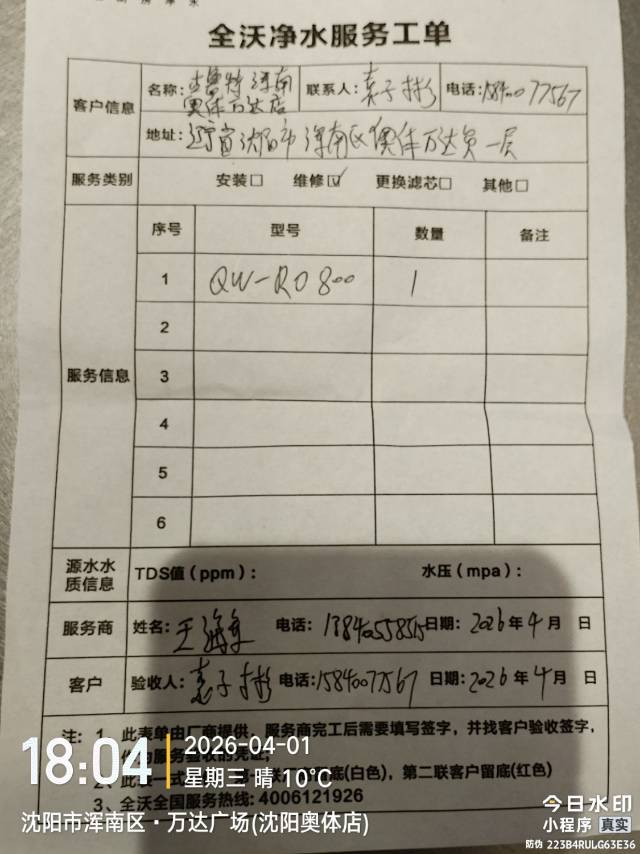 全沃净水服务工单
客户信息
名称: 吉曾特 浑南
奥体万达店
联系人: 袁子彬
电话: 15840077567
地址: 辽宁省沈阳市浑南区奥体万达负一层
服务类别 安装□ 维修☑ 更换滤芯□ 其他□
服务信息
序号 型号 数量 备注
1 QW-RO800 1
2
3
4
5
6
源水水质信息 TDS值（ppm）: 水压（mpa）:
服务商 姓名: 王 电话: 日期: 2026年4月 日
客户 验收人: 袁子彬 电话: 15840077567 日期: 2026年4月 日
注: 1、此表单由厂商提供、服务商完工后需要填写签字，并找客户验收签字，
服务验收的凭证;
2、此表一式 底(白色)，第二联客户留底(红色)
3、全沃全国服务热线: 4006121926
18:04
2026-04-01
星期三 晴 10℃
沈阳市浑南区·万达广场(沈阳奥体店)
今日水印
小程序 真实
防伪 223B4RULG63E36